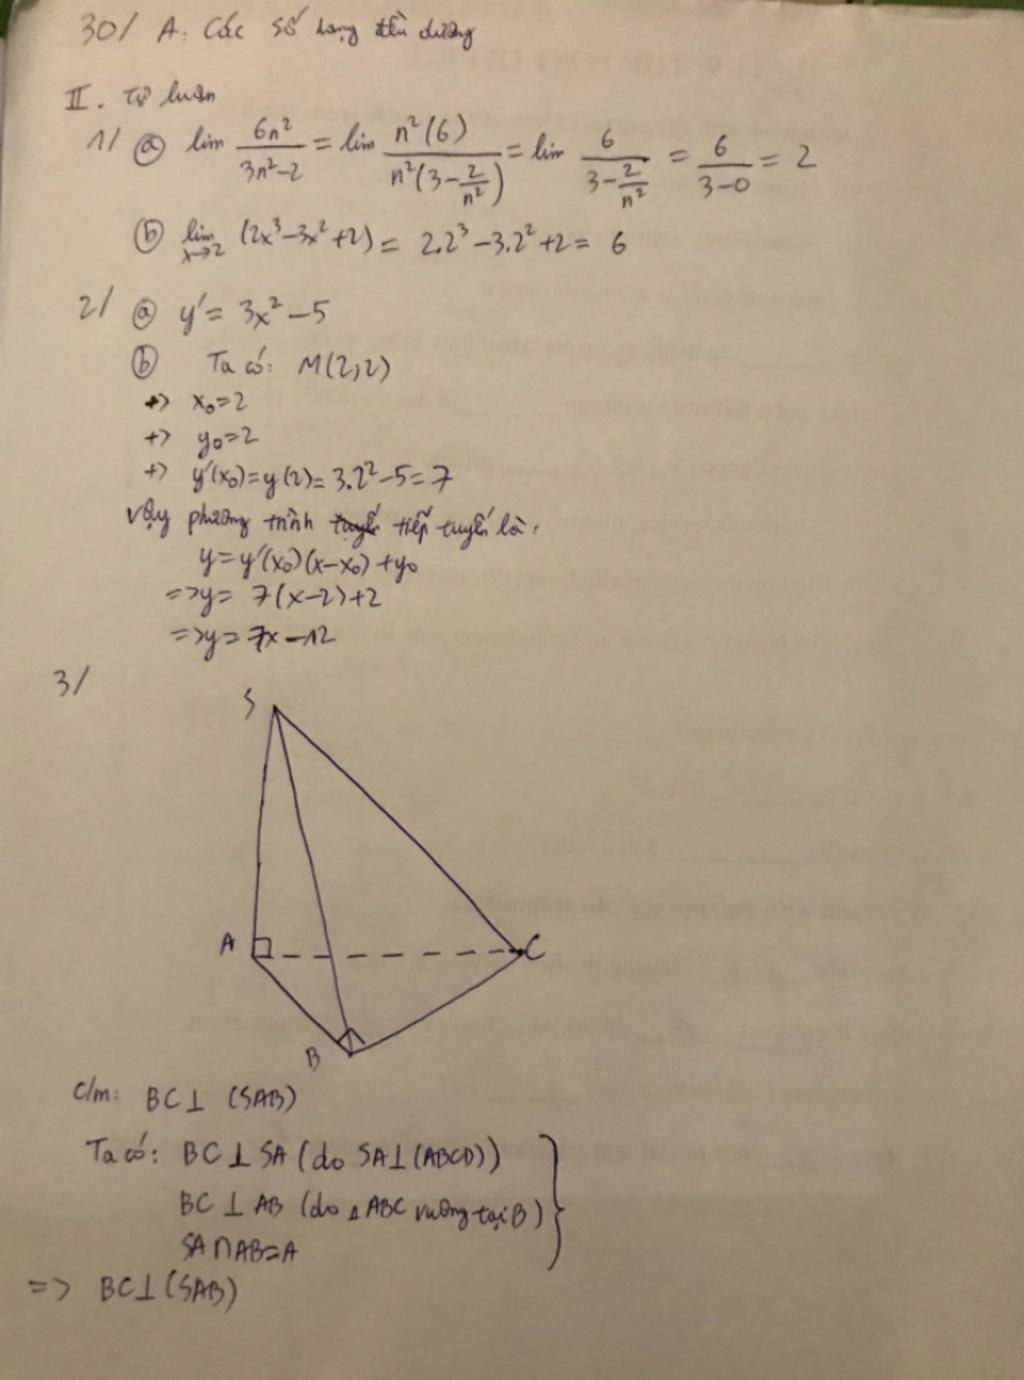 30/ A: Các số hạng đều dương
II. Tự luận
1/ ⓐ lim 6n²/(3n²-2) = lim n²(6)/(n²(3-2/n²)) = lim 6/(3-2/n²) = 6/(3-0) = 2
ⓑ lim x→2 (2x³-3x²+2) = 2.2³-3.2²+2 = 6
2/ ⓐ y' = 3x²-5
ⓑ Ta có: M(2;2)
+> x₀=2
+> y₀=2
+> y'(x₀)=y(2)=3.2²-5=7
Vậy phương trình tiếp tuyến là:
y=y'(x₀)(x-x₀)+y₀
=>y= 7(x-2)+2
=>y= 7x-12
3/
S
A
C
B
C/m: BC⊥ (SAB)
Ta có: BC⊥SA (do SA⊥(ABCD))
BC ⊥ AB (do ΔABC vuông tại B)
SA∩AB=A
=> BC⊥(SAB)